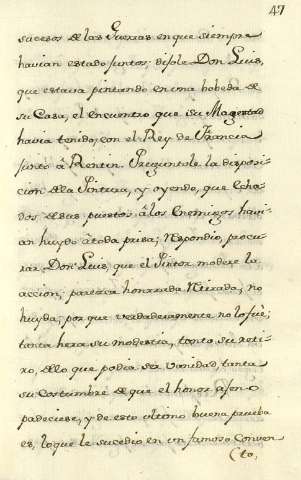 47
sucesos de las Guerras en que siempre
havian estado juntos; dijole Don Luis,
que estava pintando en una bobeda de
su Casa, el encuentro que su Magestad
havia tenido, con el Rey de Francia
junto â Rentin. Preguntole la disposi-
cion de la Pintura, y oyendo, que echa-
dos de sus puestos â los Enemigos havi-
an huydo â toda prisa; Respondio, procu-
rar Don Luis, que el Pintor modere la
accion; parezca honrrada Retirada, no
huyda; por que verdaderamente no lo fuè;
tanta hera su modestia, tanto su reti-
ro, de lo que podia ser vanidad, tanta
su costumbre de que el honor ageno
padeciese, y de esto ultimo buena prueba
es, lo que le sucedio en un famoso Conven
(to,